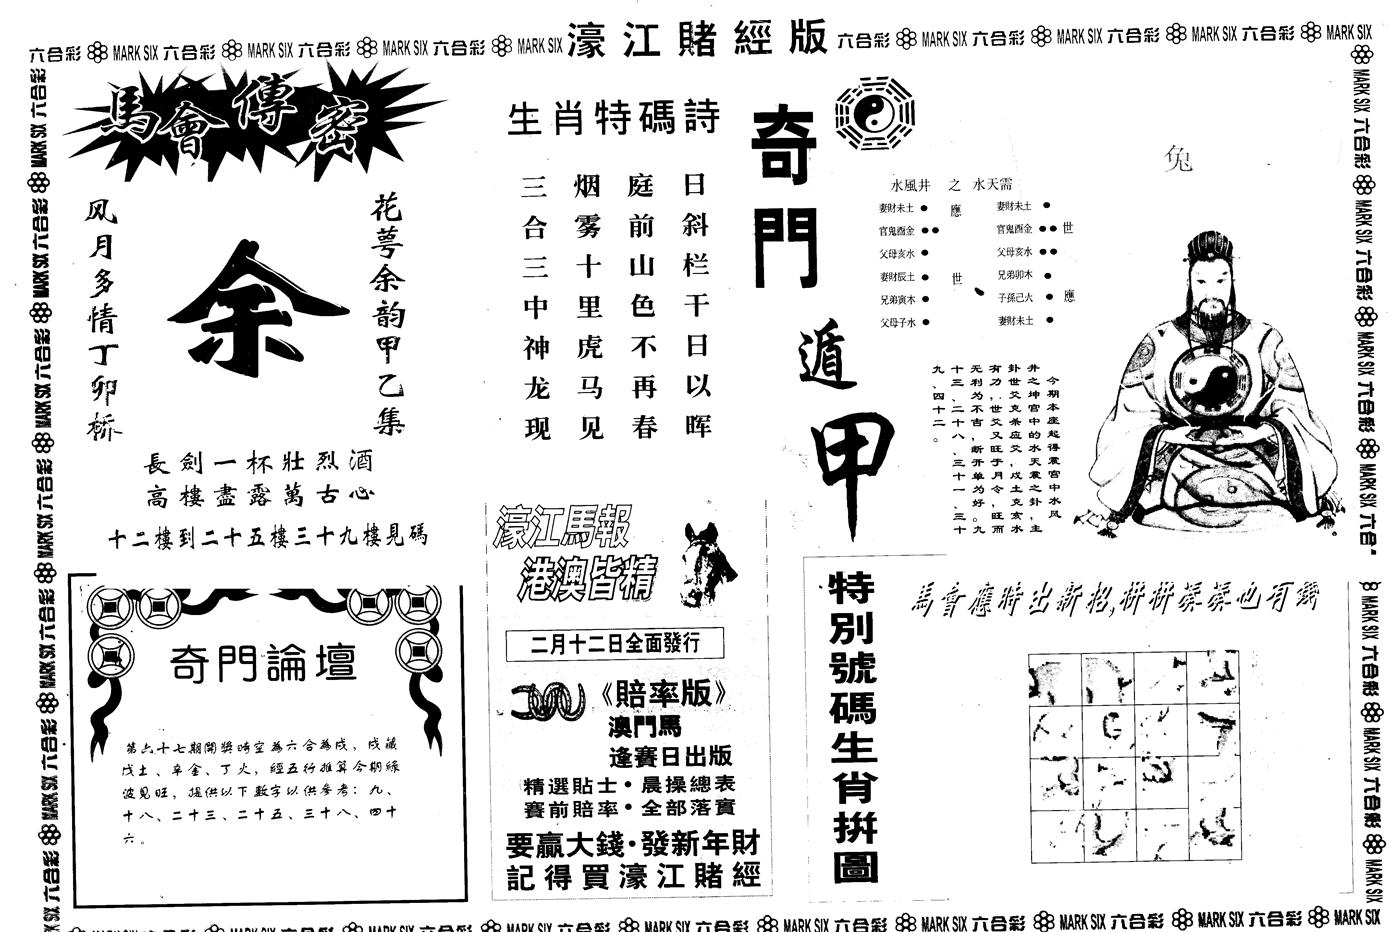 六合彩 MARK SIX 六合彩 MARK SIX 六合彩 MARK SIX 六合彩 MARK SIX 濠江賭經版 六合彩 MARK SIX 六合彩 MARK SIX 六合彩 MARK SIX 六合彩 MARK SIX
馬會傳密
花萼余韵甲乙集
余
风月多情丁卯桥
長劍一杯壯烈酒
高樓盡露萬古心
十二樓到二十五樓三十九樓見碼
奇門論壇
第六十七期開獎時空為六合為戌，戌藏
戊土、辛金、丁火，經五行推算今期綠
波見旺，提供以下數字以供參考：九、
十八、二十三、二十五、三十八、四十
六。
生肖特碼詩
日斜栏干日以晖
庭前山色不再春
烟雾十里虎马见
三合三中神龙现
濠江馬報
港澳皆精
二月十二日全面發行
《賠率版》
澳門馬
逢賽日出版
精選貼士·晨操總表
賽前賠率·全部落實
要贏大錢·發新年財
記得買濠江賭經
奇門遁甲
兔
水風井 之 水天需
妻財未土 應 妻財未土
官鬼酉金 官鬼酉金 世
父母亥水 父母亥水
妻財辰土 世 兄弟卯木
兄弟寅木 子孫己火 應
父母子水 妻財未土
今期本座起得震宫中水风
井之坤宫中的水天震之卦，主
卦世爻克杀应爻，戍土克亥水
有力，世爻又旺于月令，旺而
无利为不吉，断开单为好。九
十三、二十八、三十一、三十
九、四十二。
特別號碼生肖拼圖
馬會應時出新招,拼拼湊湊也有錢
六合彩 MARK SIX 六合彩 MARK SIX 六合彩 MARK SIX 六合彩 MARK SIX 六合彩 MARK SIX 六合彩 MARK SIX